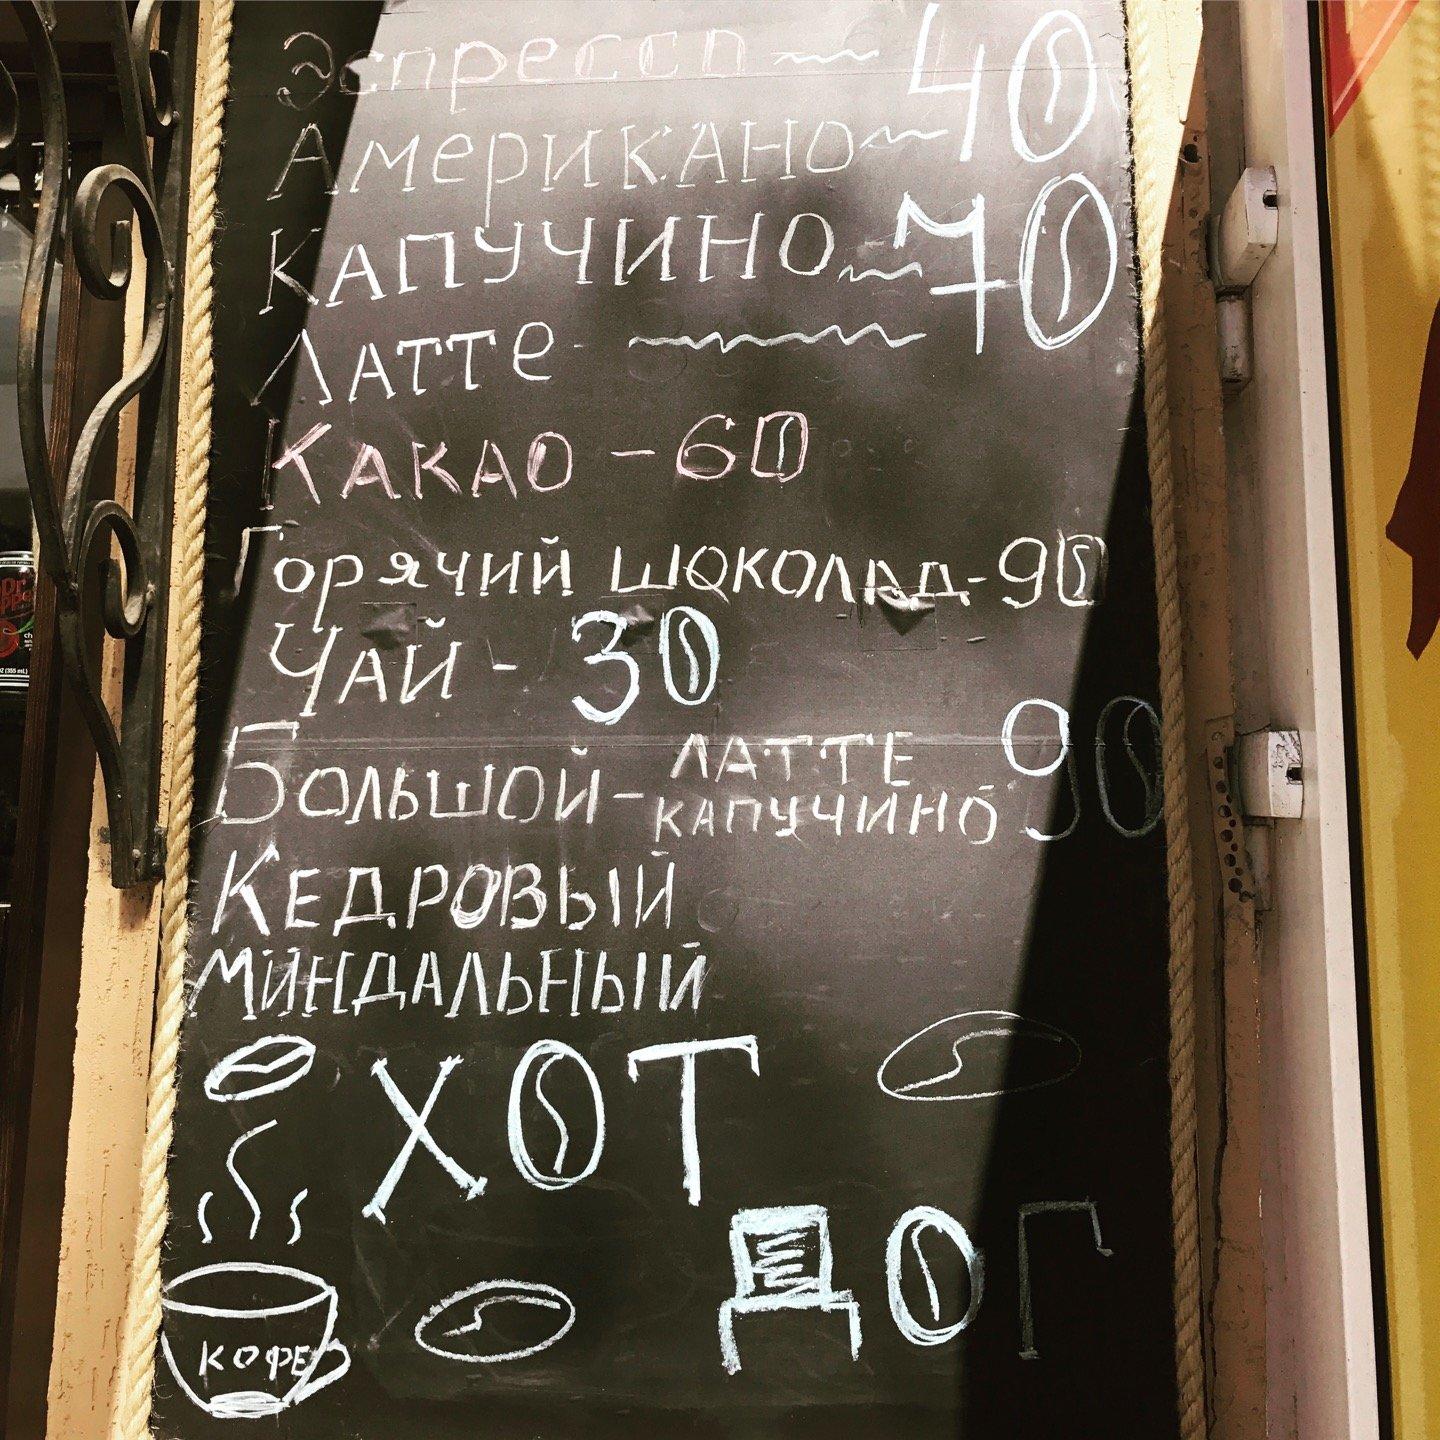 Эспрессо 40
Американо
Капучино 70
Латте
Какао - 60
Горячий шоколад - 90
Чай - 30
Большой - латте 90
капучино
Кедровый
миндальный
ХОТ
ДОГ
КОФЕ